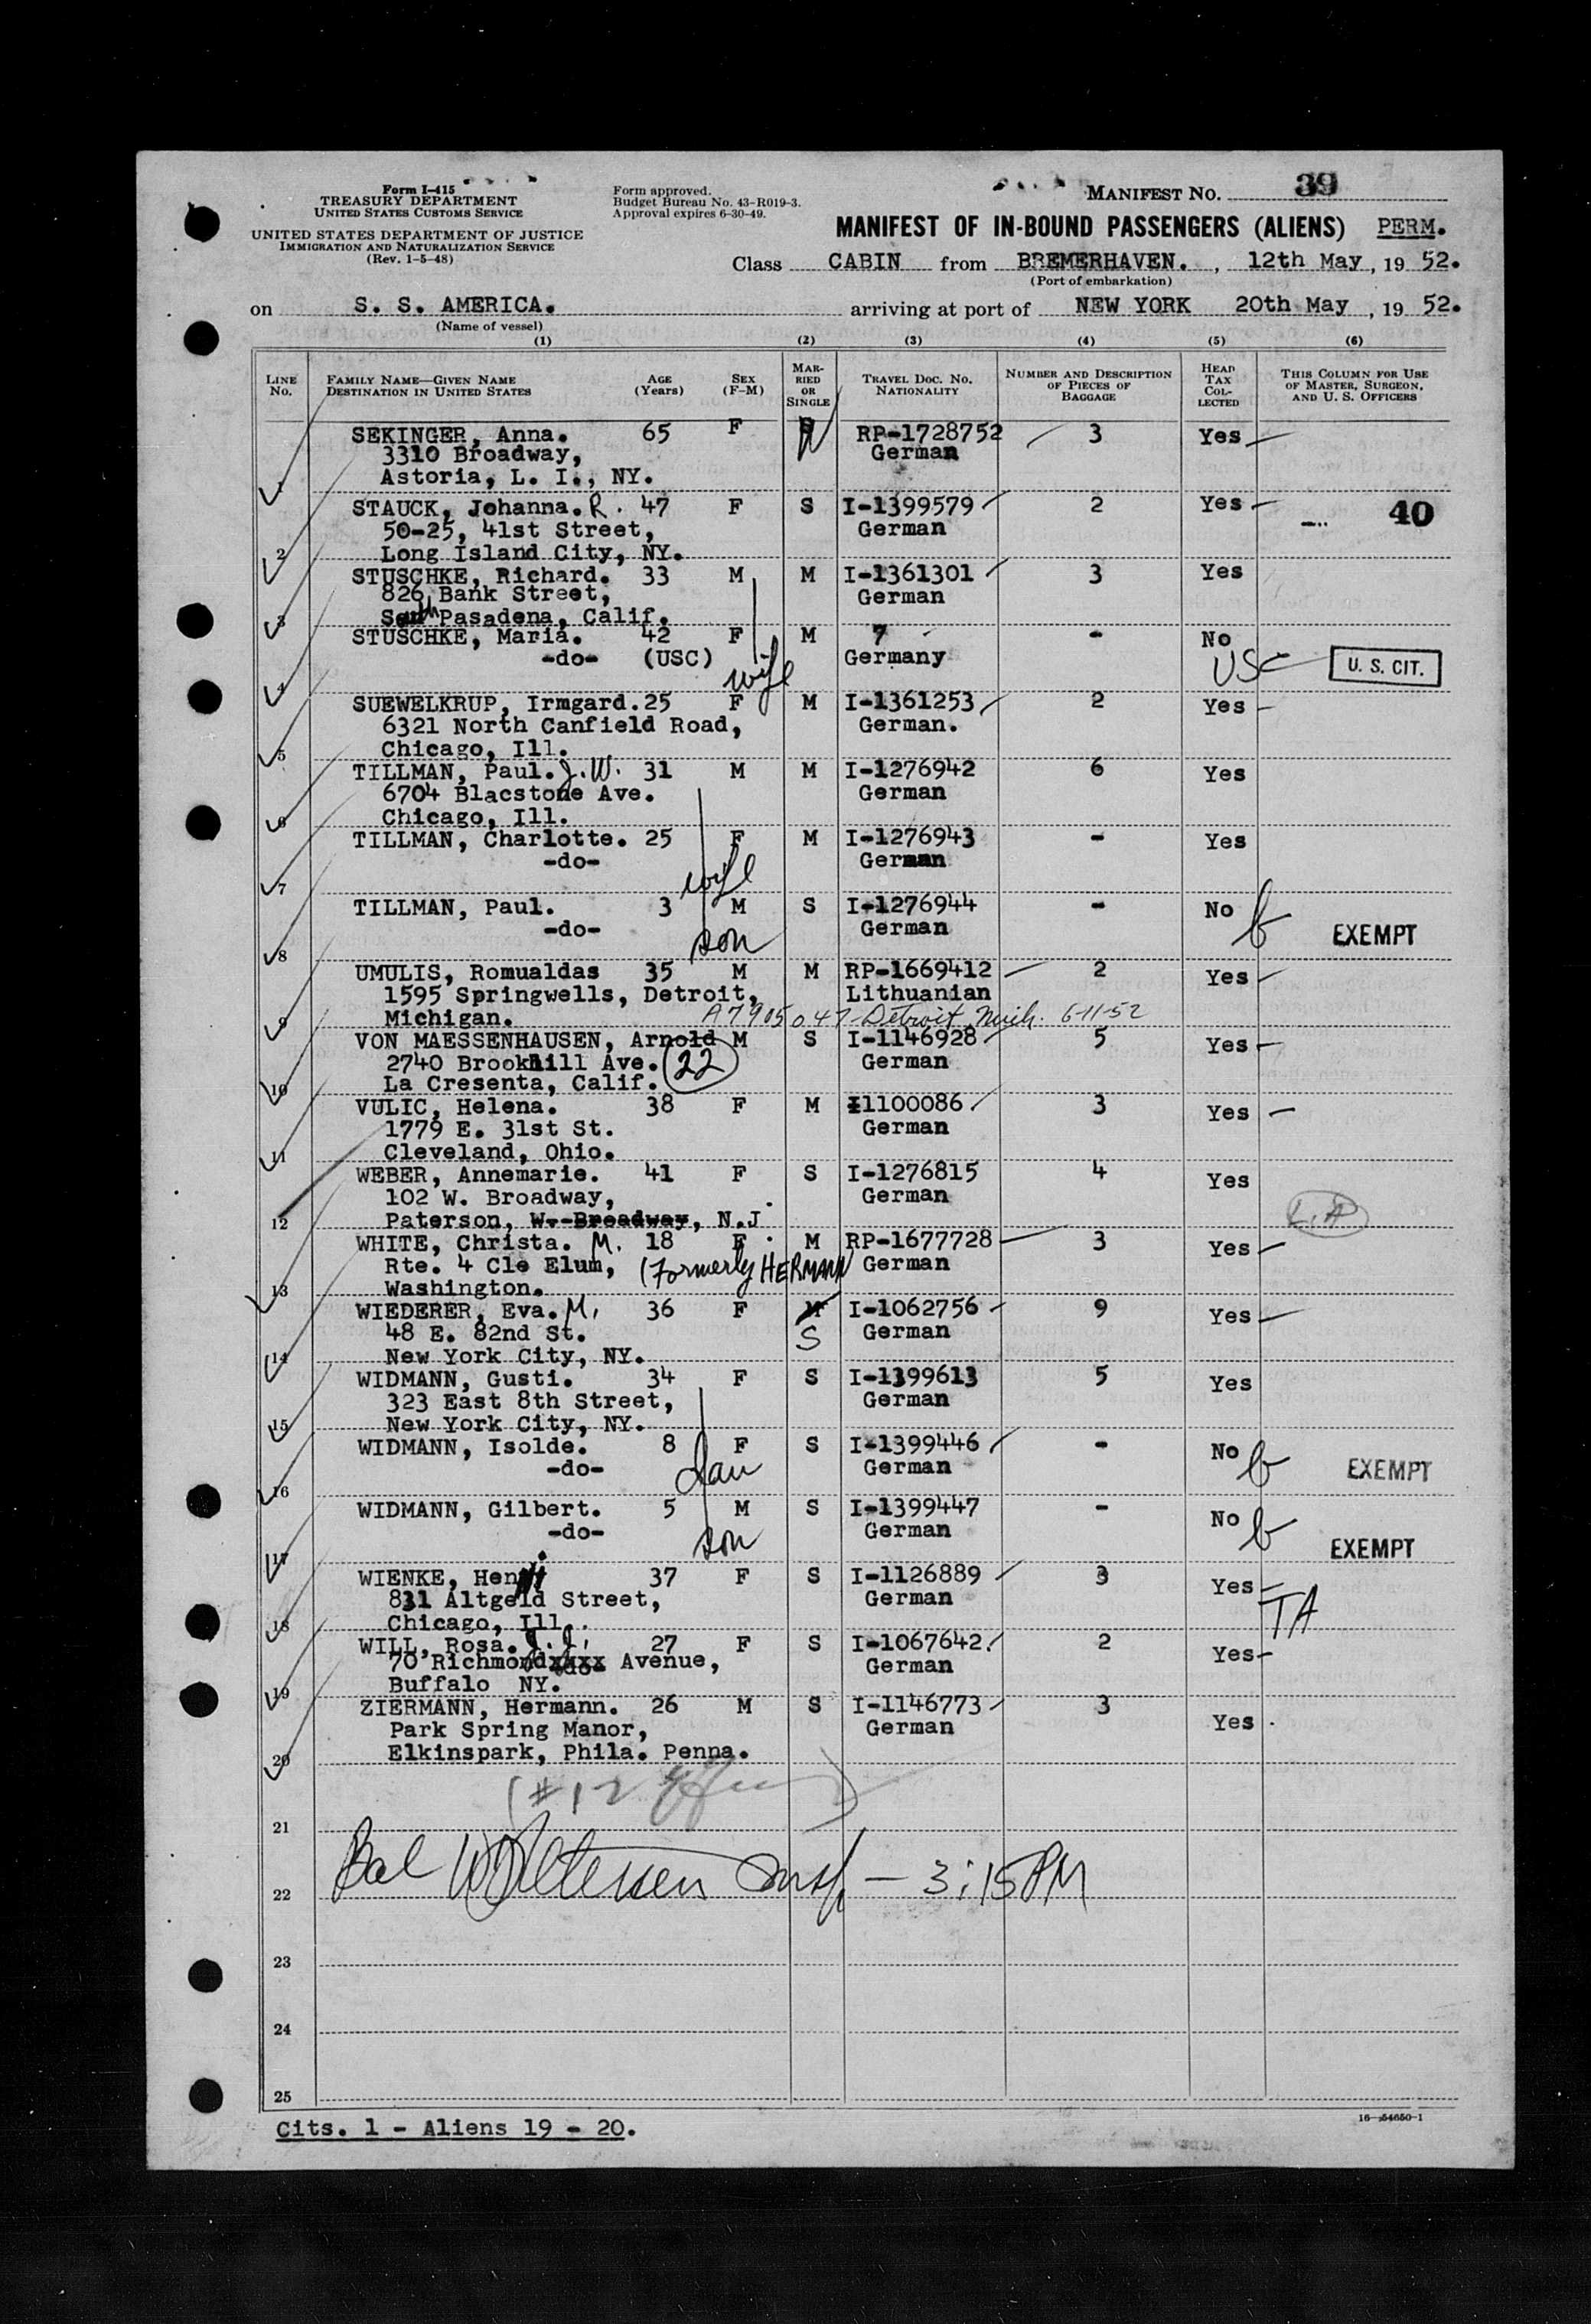 Form I-415
TREASURY DEPARTMENT
UNITED STATES CUSTOMS SERVICE
UNITED STATES DEPARTMENT OF JUSTICE
IMMIGRATION AND NATURALIZATION SERVICE
(Rev. 1-5-48)
Form approved.
Budget Bureau No. 43-R019-3.
Approval expires 6-30-49.
MANIFEST NO. 39
MANIFEST OF IN-BOUND PASSENGERS (ALIENS) PERM.
Class CABIN from BREMERHAVEN. , 12th May , 19 52.
(Port of embarkation)
on S. S. AMERICA. arriving at port of NEW YORK 20th May , 19 52.
(Name of vessel)
(1) (2) (3) (4) (5) (6)
LINE No. FAMILY NAME—GIVEN NAME DESTINATION IN UNITED STATES AGE (Years) SEX (F-M) MARRIED OR SINGLE TRAVEL DOC. NO. NATIONALITY NUMBER AND DESCRIPTION OF PIECES OF BAGGAGE HEAD TAX COLLECTED THIS COLUMN FOR USE OF MASTER, SURGEON, AND U. S. OFFICERS
SEKINGER, Anna. 65 F W RP-1728752 3 Yes
3310 Broadway, German
1 Astoria, L. I., NY.
STAUCK, Johanna. R. 47 F S I-1399579 2 Yes 40
50-25, 41st Street, German
2 Long Island City, NY.
STUSCHKE, Richard. 33 M M I-1361301 3 Yes
826 Bank Street, German
3 South Pasadena, Calif.
STUSCHKE, Maria. 42 F M 7 - No
-do- (USC) Germany USC U. S. CIT.
4 wife
SUEWELKRUP, Irmgard. 25 F M I-1361253 2 Yes
6321 North Canfield Road, German.
5 Chicago, Ill.
TILLMAN, Paul. J. W. 31 M M I-1276942 6 Yes
6704 Blacstone Ave. German
6 Chicago, Ill.
TILLMAN, Charlotte. 25 F M I-1276943 - Yes
-do- German
7 wife
TILLMAN, Paul. 3 M S I-1276944 - No
-do- German EXEMPT
8 son
UMULIS, Romualdas 35 M M RP-1669412 2 Yes
1595 Springwells, Detroit, Lithuanian
9 Michigan. A7905047 Detroit, Mich. 6-11-52
VON MAESSENHAUSEN, Arnold M S I-1146928 5 Yes
2740 Brookhill Ave. 22 German
10 La Cresenta, Calif.
VULIC, Helena. 38 F M I1100086 3 Yes
1779 E. 31st St. German
11 Cleveland, Ohio.
WEBER, Annemarie. 41 F S I-1276815 4 Yes
102 W. Broadway, German
12 Paterson, W. Broadway, N.J.
WHITE, Christa. M. 18 F M RP-1677728 3 Yes
Rte. 4 Cle Elum, (Formerly HERMANN German
13 Washington.
WIEDERER, Eva. M. 36 F M I-1062756 9 Yes
48 E. 82nd St. S German
14 New York City, NY.
WIDMANN, Gusti. 34 F S I-1399613 5 Yes
323 East 8th Street, German
15 New York City, NY.
WIDMANN, Isolde. 8 F S I-1399446 - No
-do- dau German EXEMPT
16
WIDMANN, Gilbert. 5 M S I-1399447 - No
-do- son German EXEMPT
17
WIENKE, Henni 37 F S I-1126889 3 Yes
831 Altgeld Street, German TA
18 Chicago, Ill.
WILL, Rosa. J. J. 27 F S I-1067642. 2 Yes
70 Richmondxxxx Avenue, German
19 Buffalo NY.
ZIERMANN, Hermann. 26 M S I-1146773 3 Yes
Park Spring Manor, German
20 Elkinspark, Phila. Penna.
21
22 Insp. — 3:15 PM
23
24
25
Cits. 1 - Aliens 19 - 20.
16—54650-1